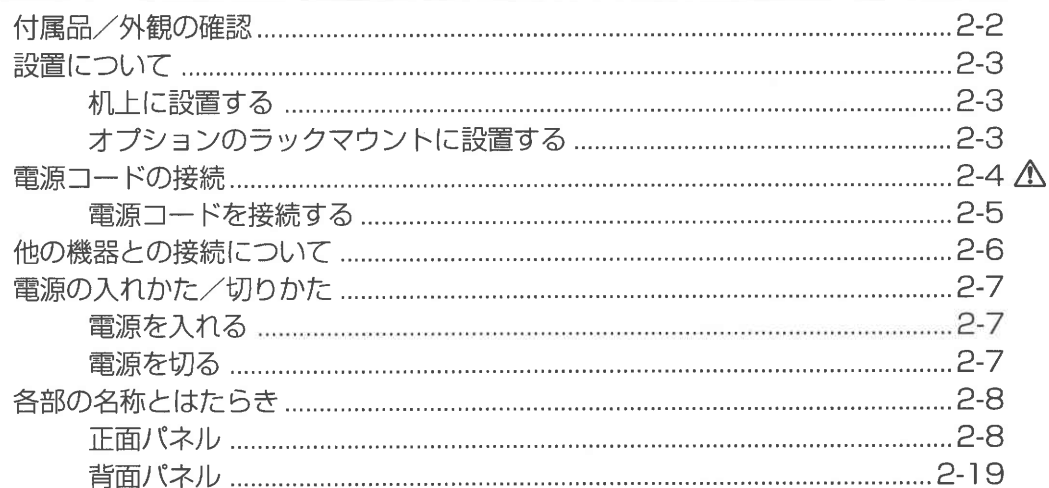 付属品／外観の確認 2-2
設置について 2-3
机上に設置する 2-3
オプションのラックマウントに設置する 2-3
電源コードの接続 2-4 ⚠
電源コードを接続する 2-5
他の機器との接続について 2-6
電源の入れかた／切りかた 2-7
電源を入れる 2-7
電源を切る 2-7
各部の名称とはたらき 2-8
正面パネル 2-8
背面パネル 2-19